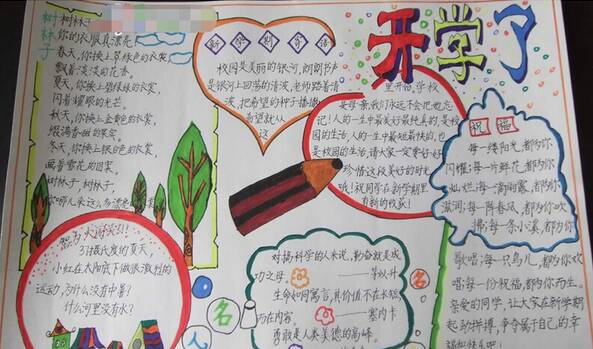 开学了
树林子
树林子
你的衣服真漂亮
春天,你换上翠绿色的衣裳
飘着淡淡的花香。
夏天,你换上碧绿绿的衣裳
闪着耀眼的光芒。
秋天,你换上金黄色的衣裳
缀满香甜的果实。
冬天,你换上银白色的衣裳
画着雪花的图案
树林子,树林子,
新学期寄语
校园是美丽的银河,朗朗书声
是银河上回荡的清波,老师踏着清
波,把希望的种子播撒
希望就从
这
里开始,学校
是学习,我们永远不会把她忘
记!人的一生中最美好最纯真的,是校
园的生活,人的一生中最短最快的,也
是校园的生活,请大家一定要好好
珍惜这段美好的时光
哦!祝同学在新学期里
有新的收获!
祝福
每一缕阳光,都为你
闪耀;每一片鲜花,都为你
灿烂;每一滴雨露,都为你
滋润;每一阵春风,都为你吹
拂;每一条小溪,都为你
歌唱;每一只鸟儿,都为你欢
唱;每一份祝福,都为你而生。
亲爱的同学,让大家在新学期
起劲拼搏,争夺属于自己的幸
福和快乐吧!
37摄氏度的夏天,
小红在太阳底下做很激烈的
运动,为什么没有中暑?
什么河里没有水?
对搞科学的人来说,勤奋就是成
功之母
——茅以升
生命如同寓言,其价值不在长短,
而在内容。
——塞内卡
勇敢是人类美德的高峰。
名
名
人